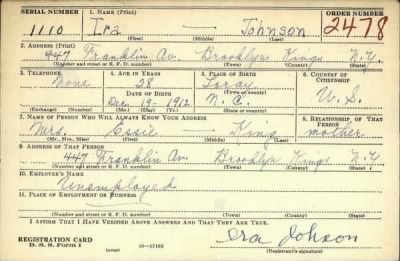 SERIAL NUMBER 1. NAME (Print) ORDER NUMBER
1110 Ira — Johnson 2478
(First) (Middle) (Last)
2. ADDRESS (Print)
447 Franklin Av. Brooklyn Kings N.Y.
(Number and street or R. F. D. number) (Town) (County) (State)
3. TELEPHONE 4. AGE IN YEARS 5. PLACE OF BIRTH 6. COUNTRY OF CITIZENSHIP
None 28 Loray
DATE OF BIRTH (Town or county)
Dec. 19-1912 N.C. U.S.
(Exchange) (Number) (Mo.) (Day) (Yr.) (State or country)
7. NAME OF PERSON WHO WILL ALWAYS KNOW YOUR ADDRESS 8. RELATIONSHIP OF THAT PERSON
Mrs. Essie — King mother
(Mr., Mrs., Miss) (First) (Middle) (Last)
9. ADDRESS OF THAT PERSON
447 Franklin Av. Brooklyn Kings N.Y.
(Number and street or R. F. D. number) (Town) (County) (State)
10. EMPLOYER'S NAME
Unemployed
11. PLACE OF EMPLOYMENT OR BUSINESS
(Number and street or R. F. D. number) (Town) (County) (State)
I AFFIRM THAT I HAVE VERIFIED ABOVE ANSWERS AND THAT THEY ARE TRUE.
REGISTRATION CARD
D. S. S. Form 1 (over) 16—17105 Ira Johson
(Registrant's signature)